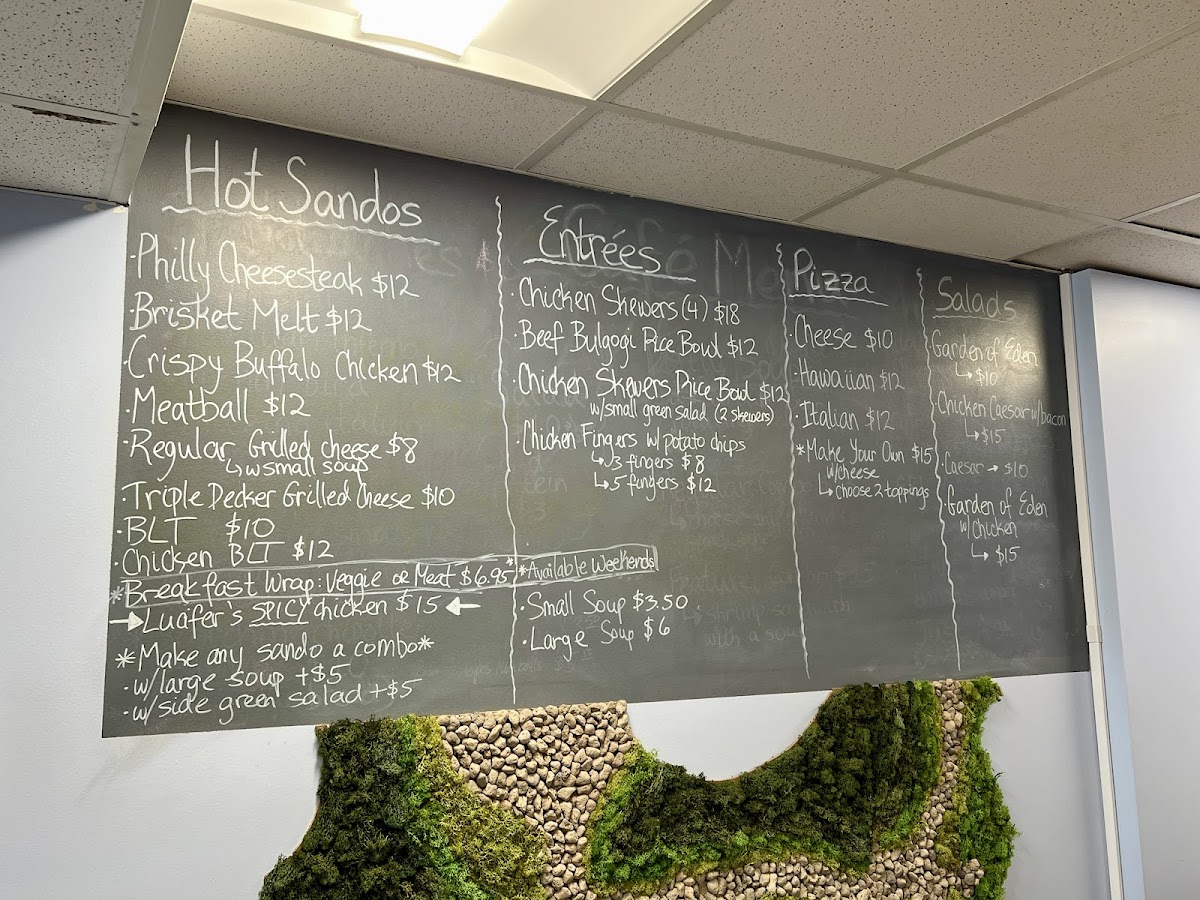 Hot Sandos
·Philly Cheesesteak $12
·Brisket Melt $12
·Crispy Buffalo Chicken $12
·Meatball $12
·Regular Grilled cheese $8
↳w small soup
·Triple Decker Grilled Cheese $10
·BLT $10
·Chicken BLT $12
*Breakfast Wrap: Veggie or Meat $6.95* *Available Weekends
→Luafer's SPICY chicken $15←
*Make any sando a combo*
·w/large soup +$5
·w/side green salad +$5
Entrées
·Chicken Skewers (4) $18
·Beef Bulgogi Rice Bowl $12
·Chicken Skewers Rice Bowl $12
w/small green salad (2 skewers)
·Chicken Fingers w/potato chips
↳3 fingers $8
↳5 fingers $12
·Small Soup $3.50
·Large Soup $6
Pizza
·Cheese $10
·Hawaiian $12
·Italian $12
*Make Your Own $15
w/cheese
↳choose 2 toppings
Salads
·Garden of Eden
↳$10
·Chicken Caesar w/bacon
↳$15
·Caesar→$10
·Garden of Eden
w/Chicken
↳$15